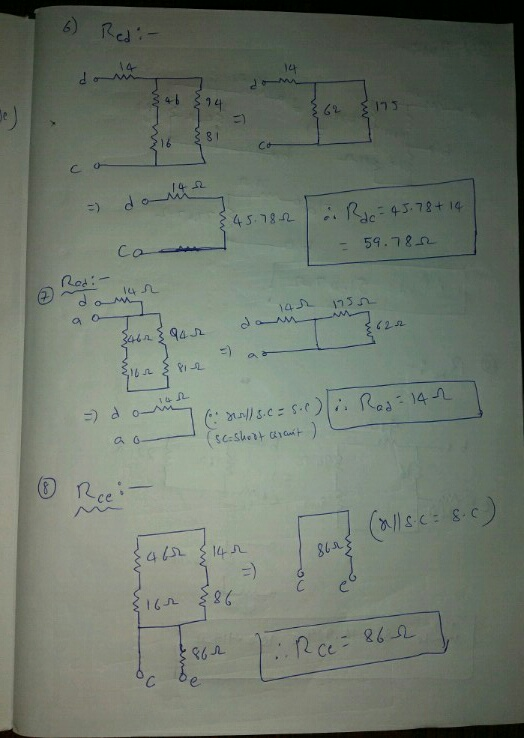 6) Rcd :-
14
d
46
94
16
81
c
=>
14
d
62
175
c
=> d 14 Ω
45.78 Ω
c
∴ Rdc = 45.78 + 14
= 59.78 Ω
7 Rad :-
d 14 Ω
a
46 Ω 94 Ω
16 Ω 81 Ω
=>
14 Ω 175 Ω
d
62 Ω
a
=> d 14 Ω
a
(∵ x//s.c = s.c)
(sc = short circuit)
∴ Rad = 14 Ω
8 Rce :-
46 Ω 14 Ω
16 Ω 86
86 Ω
c e
=>
86 Ω
c e
(x//s.c = s.c)
∴ Rce = 86 Ω